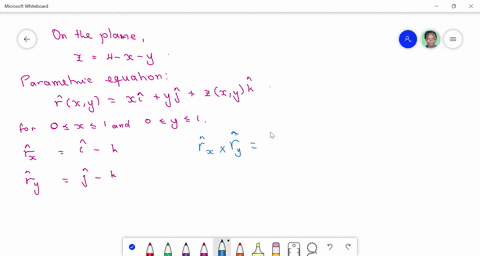 Microsoft Whiteboard
On the plane,
z = 4 - x - y
Parametric equation:
r̂(x,y) = xî + yĵ + z(x,y)k̂
for 0 ≤ x ≤ 1 and 0 ≤ y ≤ 1.
r̂x = î - k
r̂y = ĵ - k
r̂x × r̂y =